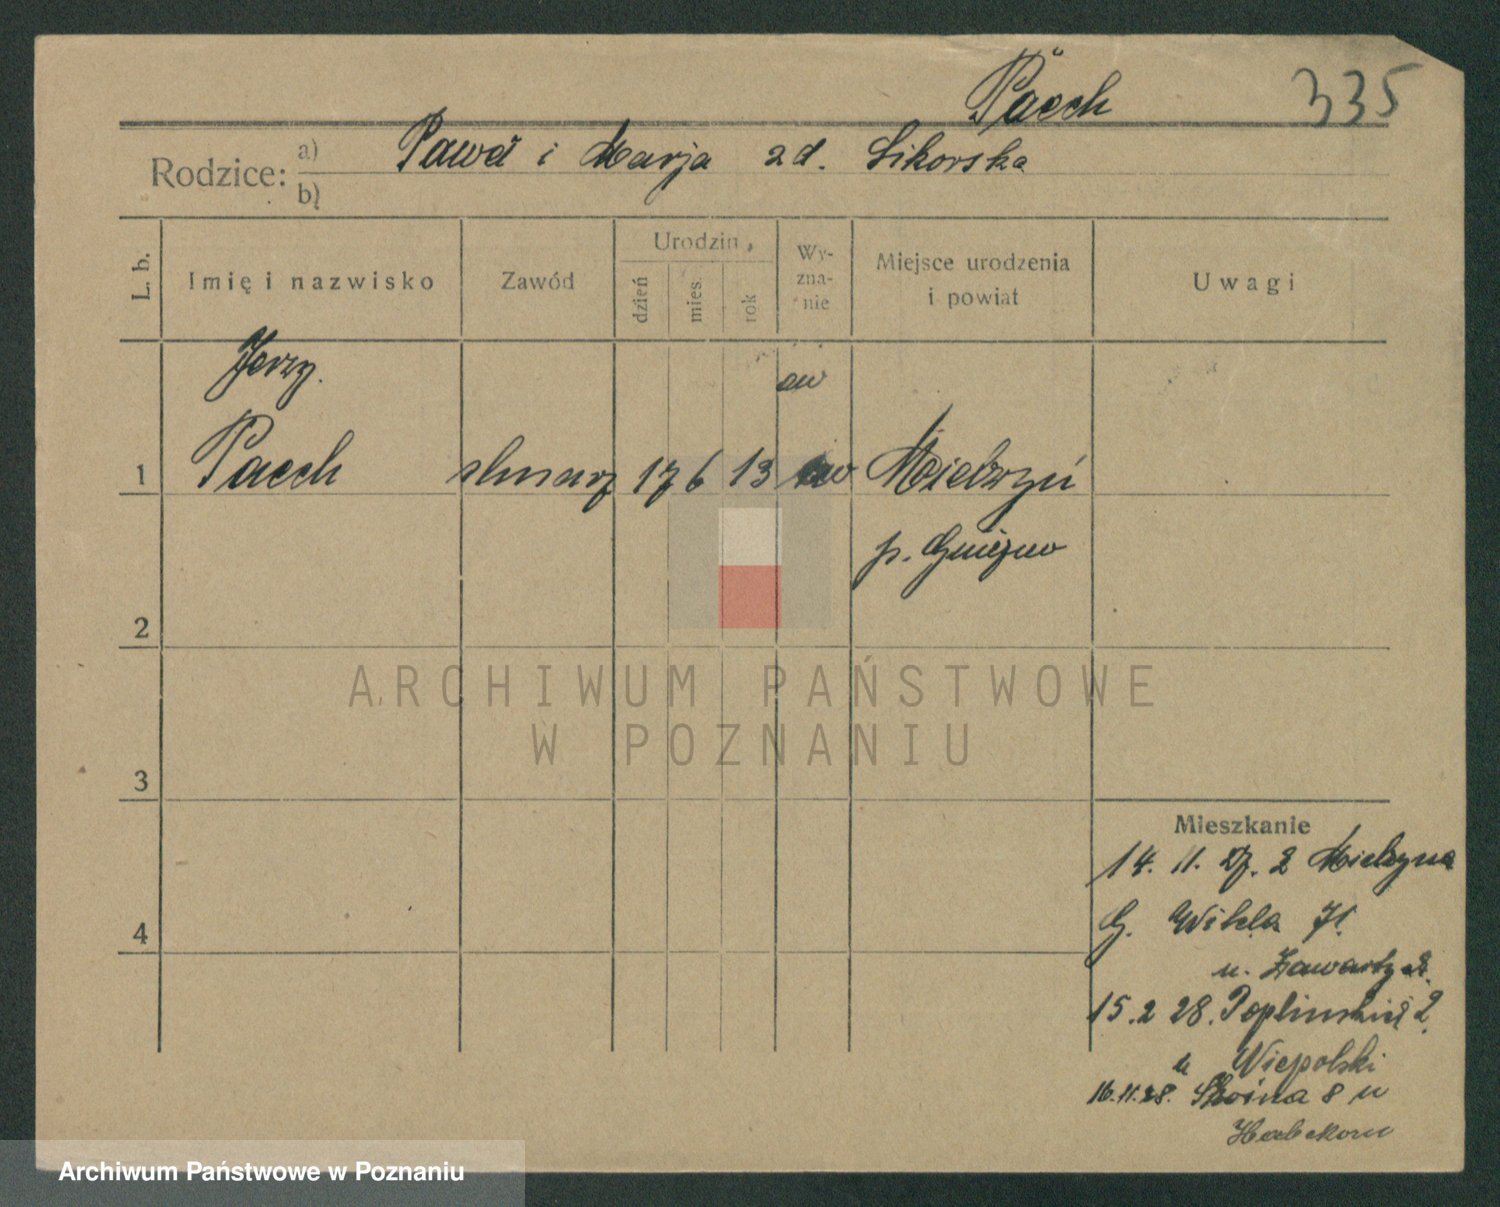 Paech 335
Rodzice: a) Paweł i Marja zd. Sikorska
b)
L. b. Imię i nazwisko Zawód Urodzin dzień mies. rok Wy-zna-nie Miejsce urodzenia i powiat Uwagi
Jerzy ew
1 Paech ślusarz 17 6 13 ew Mielżyn
p. Gniezno
2
ARCHIWUM PAŃSTWOWE
W POZNANIU
3
Mieszkanie
14. 11. 27. z Mielżyna
4 G. Wilda 71.
u.
15. 2 28. Poplińskich 2.
u Wiepolski
16.11.28. 8 u
Archiwum Państwowe w Poznaniu